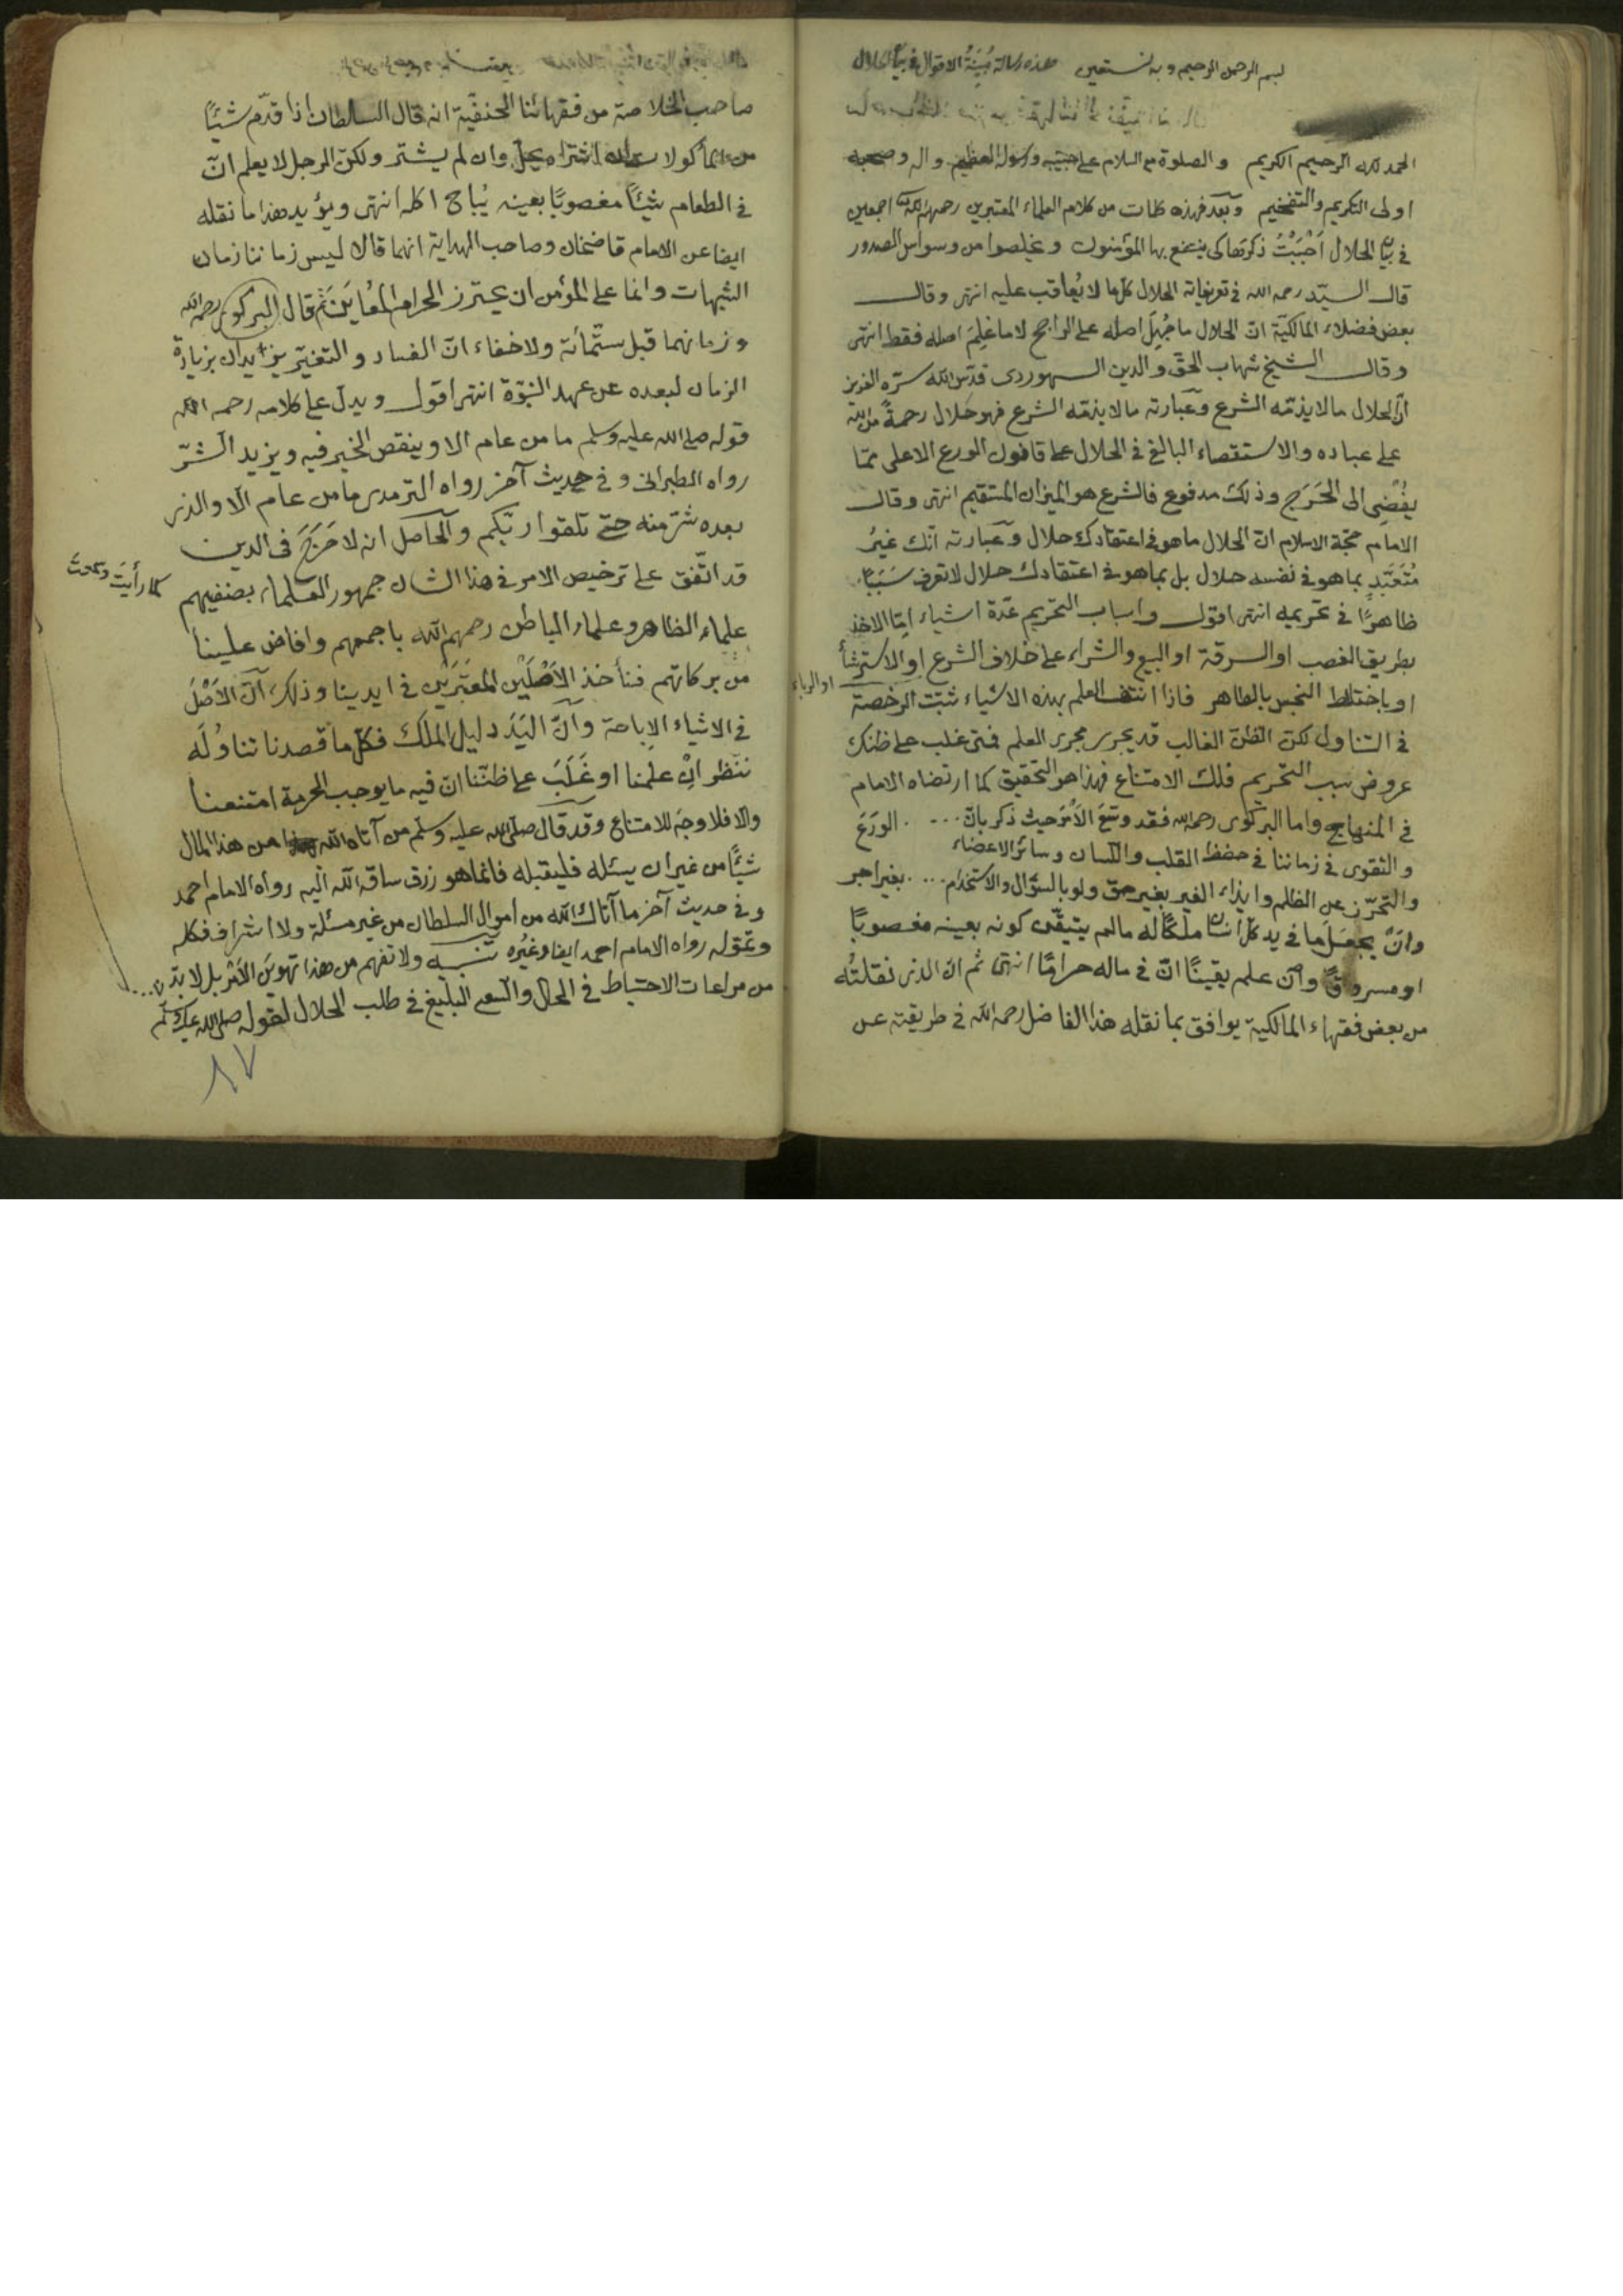 بسم الرحمن الرحيم وبه نستعين هذه رسالة مُبَيِّنَةُ الاقوال في بيان الحلال
الحمد لله الرحيم الكريم والصلوة مع السلام على حبيبه ورسوله العظيم واله وصحبه
اولى التكريم والتفخيم وبَعد فهذه كلمات من كلام العلماء المعتبرين رحمهم الله تعالى اجمعين
في بيان الحلال اَحْبَبْتُ ذكرتها كى ينتفع بها المؤمنون ويخلصوا من وسواس الصدور
قال السيّد رحمه الله في تعريفاته الحلال كلّ ما لا يُعاقب عليه انتهى وقال
بعض فضلاء المالكيّة انّ الحلال ما جُهِلَ اصله على الراجح لا ما عُلِمَ اصله فقط انتهى
وقال الشيخ شهاب الحقّ والدين السهروردى قدّس الله سرّه العزيز
انّ الحلال ما لا يذمّه الشرع وعبارته ما لا يذمّه الشرع فهو حلال رحمةً من الله
على عباده والاستقصاء البالغ في الحلال على قانون الورع الاعلى ممّا
يفُضِى الى الحَرَج وذلك مدفوع فالشرع هو الميزان المستقيم انتهى وقال
الامام حجّة الاسلام انّ الحلال ما هو في اعتقادك حلال وعبارته انّك غيرُ
مُتَعَبَّدٍ بما هو في نفسه حلال بل بما هو في اعتقادك حلال لا تعرف سَبَبًا
ظاهرًا في تحريمه انتهى اقول واسباب التحريم عدّة اشياء امّا الاخذ
بطريق الغصب او السرقة او البيع والشراء على خلاف الشرع او الاسترشأ
او الرباء
او باختلاط النجس بالطاهر فاذا انتفى العلم بهذه الاشياء ثبتت الرخصة
في التناول لكنّ الظنّ الغالب قد يجرى مجرى العلم فمتى غلب على ظنك
عروض سبب التحريم فلك الامتناع فهذا هو التحقيق كما ارتضاه الامام
في المنهاج واما البركوى رحمه الله فقد وسّع الاَمْرَ حيث ذكر بانّ .... الوَرَعَ
والتقوى في زماننا في حفظ القلب واللسان وسائر الاعضاء
والتحرّز عن الظلم وايذاء الغير بغير حق ولو بالسؤال والاستخدام .... بغير اجر
وانْ يجعَلَ ما في يد كلّ انسان ملكًا له ما لم يتيقّن كونه بعينه مغصوبًا
او مسروقًا وان علم يقينًا انّ في ماله حرامًا انتهى ثم انّ الذى نقلتُه
من بعض فقهاء المالكية يوافق بما نقله هذا الفاضل رحمه الله في طريقته عن
صاحب الخلاصة من فقهائنا الحنفيّة انه قال السلطان اذا قدّم شيئًا
من المأكولات ان اشتراه يحلّ وان لم يشتر ولكنّ الرجل لا يعلم انّ
في الطعام شيئًا مغصوبًا بعينه يُباح اكله انتهى ويؤيد هذا ما نقله
ايضا عن الامام قاضخان وصاحب الهداية انهما قالا ليس زماننا زمان
الشبهات وانما على المؤمن ان يحترز الحرام المُعايَنَ ثم قال البركوى رحمه الله
وزمانهما قبل ستّمائة ولا خفاء انّ الفساد والتغيّر يزيدان بزيادة
الزمان لبعده عن عهد النبّوة انتهى اقول ويدلّ على كلامه رحمه الله
قوله صلى الله عليه وسلم ما من عام الا وينقص الخير فيه ويزيد الشرّ
رواه الطبرانى وفي حديث آخر رواه الترمدى ما من عام الّا والذى
بعده شرّ منه حتى تلقوا ربّكم والحاصل انه لا حَرَجَ في الدين
كما رأيتَ وسمعتَ
قد اتّفق على ترخيص الامر في هذا الشان جمهور العلماء بصنفيهم
علماء الظاهر وعلماء الباطن رحمهم الله باجمعهم وافاض علينا
من بركاتهم فنأخذ الاَصْلَيْنِ المُعتَبَرَيْنِ في ايدينا وذلك انّ الاَصْلَ
في الاشياء الاِباحة وانّ اليَدَ دليل الملك فكلّ ما قصدنا تناوُلَه
ننظر اِنْ علمنا او غَلَبَ على ظنّنا انّ فيه ما يوجب الحرمة امتنعنا
والا فلا وجهَ للامتناع وقد قال صلّى الله عليه وسلّم من آتاه الله من هذا المال
شيئًا من غير ان يسئله فليقبله فانما هو رزق ساقه الله اليه رواه الامام احمد
وفي حديث آخر ما آتاك الله من اموال السلطان من غير مسئلة ولا اشراف فكله
وتموّله رواه الامام احمد ايضا وغيُره تنبيه ولا تفهم من هذا تهوين الامر بل لا بدّ
من مراعات الاحتياط في الحال والسعى البليغ في طلب الحلال لقوله صلى الله عليه وسلّم
٨٧